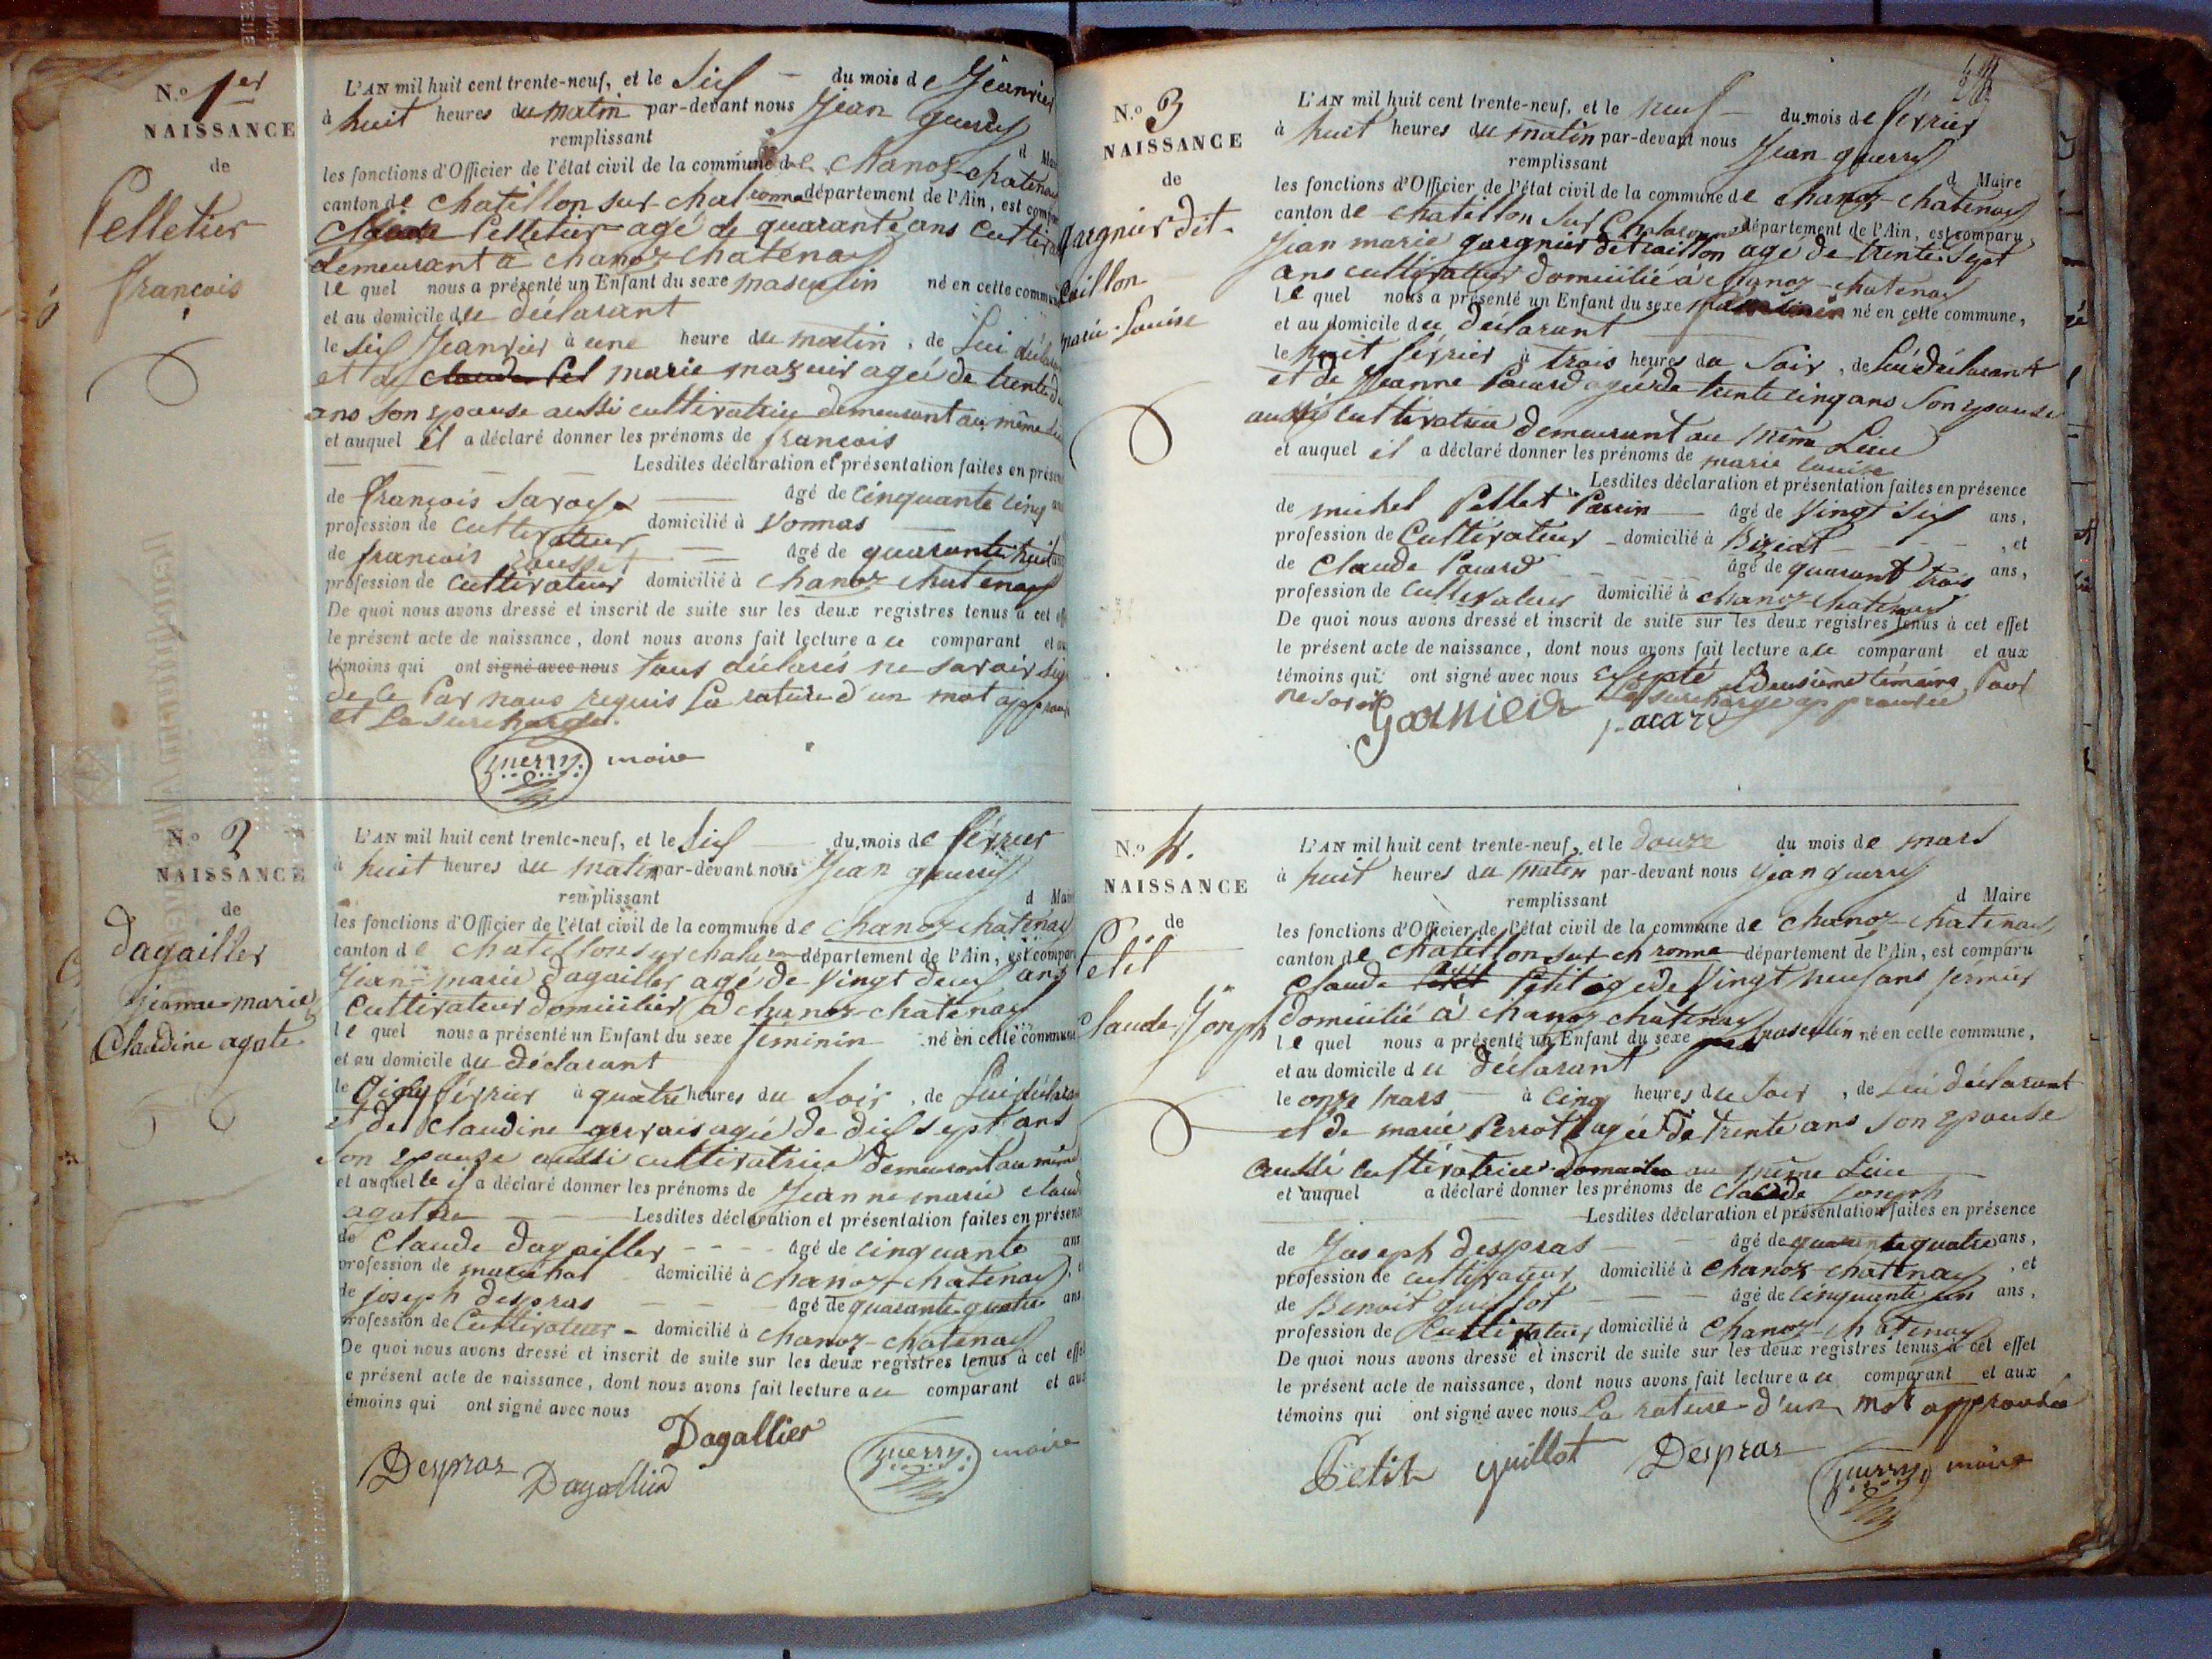 N.o 1er
NAISSANCE
de
Pelletier
françois
L'AN mil huit cent trente-neuf, et le Six du mois de Jeanvier
à huit heures du matin par-devant nous Jean guerry
remplissant d Mai
les fonctions d'Officier de l'état civil de la commune de Chanoz-chatenay
canton de chatillon sur chalaronne département de l'Ain, est compar
Claude Pelletier agé de quarante ans Cultiva
demeurant a chanoz chatenay
le quel nous a présenté un Enfant du sexe masculin né en cette commu
et au domicile du déclarant
le Six Jeanvier à une heure du matin, de Lui déclar
et de claude Pel marie mazuir agée de trente d
ans son epouse aussi cultivatrice demeurant au même
et auquel il a déclaré donner les prénoms de françois
Lesdites déclaration et présentation faites en présen
de françois Savoye âgé de cinquante cinq an
profession de cultivateur domicilié à Vonnas
de françois Rousset âgé de quarante huit
profession de cultivateur domicilié à chanoz chatenay
De quoi nous avons dressé et inscrit de suite sur les deux registres tenus à cet eff
le présent acte de naissance, dont nous avons fait lecture a ce comparant et au
témoins qui ont signé avec nous tous déclarés ne savoir sig
de ce par nous requis La rature d'un mot approuv
et la surcharge.
guerry maire
N.o 2
NAISSANCE
de
dagailler
jeanne-marie
Claudine agate
L'AN mil huit cent trente-neuf, et le Six du mois de février
à huit heures du matin par-devant nous Jean guerry
remplissant d Mai
les fonctions d'Officier de l'état civil de la commune de chanoz chatenay
canton de chatillon sur chalaronne département de l'Ain, est compar
Jean-marie dagailler agé de vingt deux ans
Cultivateur domicilié a chanoz-chatenay
le quel nous a présenté un Enfant du sexe féminin né en cette commune
et au domicile du déclarant
le cinq février à quatre heures du Soir, de Lui déclar
et de claudine gervais agée de dix sept ans
Son epouse aussi cultivatrice demeurant au même
et auquelle il a déclaré donner les prénoms de Jeanne marie claud
agathe Lesdites déclaration et présentation faites en présen
de Claude dagailler âgé de cinquante ans
profession de maréchal domicilié à chanoz-chatenay
de joseph despras âgé de quarante quatre ans
profession de Cultivateur domicilié à chanoz-chatenay
De quoi nous avons dressé et inscrit de suite sur les deux registres tenus à cet effe
le présent acte de naissance, dont nous avons fait lecture a ce comparant et aux
témoins qui ont signé avec nous
Dagallier
Despras Dagallier guerry maire
N.o 3
NAISSANCE
de
gargnier dit
Caillon
marie-Louise
L'AN mil huit cent trente-neuf, et le neuf du mois de février
à huit heures du matin par-devant nous Jean guerry
remplissant d Maire
les fonctions d'Officier de l'état civil de la commune de chanoz-chatenay
canton de chatillon sur Chalaronne département de l'Ain, est comparu
Jean marie gargnier dit caillon agé de trente sept
ans cultivateur domicilié à chanoz-chatenay
le quel nous a présenté un Enfant du sexe né en cette commune,
et au domicile du déclarant
le huit février à trois heures du Soir, de Lui déclarant
et de Jeanne Pacard agée de trente cinq ans Son epouse
aussi cultivatrice demeurant au même Lieu
et auquel il a déclaré donner les prénoms de marie louise
Lesdites déclaration et présentation faites en présence
de michel Pellet Perrin âgé de vingt six ans,
profession de Cultivateur domicilié à Biziat, et
de Claude Pacard âgé de quarant trois ans,
profession de cultivateur domicilié à chanoz chatenay
De quoi nous avons dressé et inscrit de suite sur les deux registres tenus à cet effet
le présent acte de naissance, dont nous avons fait lecture a ce comparant et aux
témoins qui ont signé avec nous excepté Deuxième témoins pour
ne savoir La surcharge approuvée
Garnier pacard
N.o 4.
NAISSANCE
de
Petit
Claude-Joseph
L'AN mil huit cent trente-neuf, et le douze du mois de mars
à huit heures du matin par-devant nous jean guerry
remplissant d Maire
les fonctions d'Officier de l'état civil de la commune de chanoz-chatenay
canton de chatillon sur ch ronne département de l'Ain, est comparu
Claude Petit agé de vingt neuf ans fermier
domicilié à chanoz chatenay
le quel nous a présenté un Enfant du sexe masculin né en cette commune,
et au domicile du déclarant
le onze mars à cinq heures du soir, de Lui déclarant
et de marie Perrot agée de trente ans Son epouse
aussi cultivatrice au même Lieu
et auquel a déclaré donner les prénoms de claude joseph
Lesdites déclaration et présentation faites en présence
de Joseph despras âgé de quarante quatre ans,
profession de cultivateur domicilié à chanoz-chatenay, et
de Benoit guillot âgé de cinquante un ans,
profession de Cultivateur domicilié à chanoz-chatenay
De quoi nous avons dressé et inscrit de suite sur les deux registres tenus à cet effet
le présent acte de naissance, dont nous avons fait lecture a ce comparant et aux
témoins qui ont signé avec nous La rature d'un mot approuvée
Petit guillot Despras guerry maire